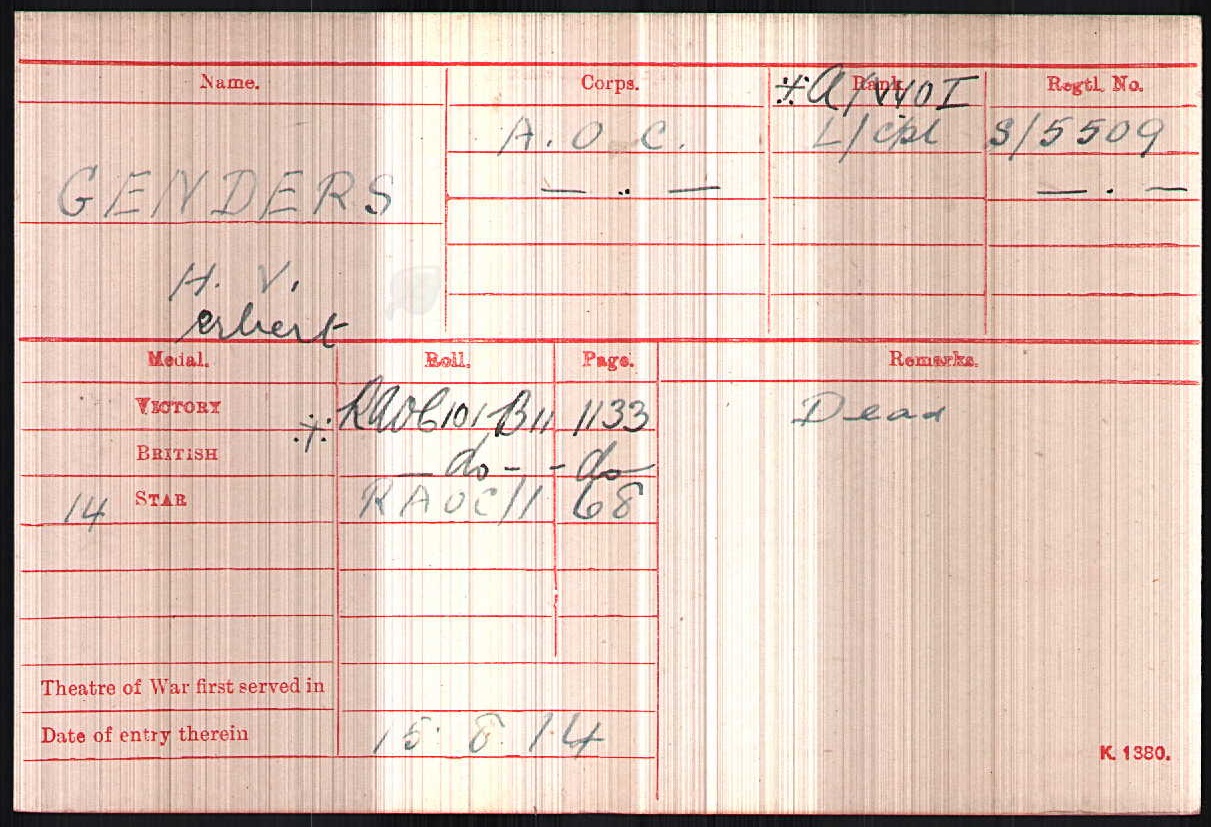 Name. Corps. Rank. Regtl. No.
※A/WOI
A.O.C. L/cpl S/5509
GENDERS — .. — — . —
H. V.
erbert
Medal. Roll. Page. Remarks.
VICTORY ※ RAOC101 B11 1133 Dead
BRITISH —do- -do—
14 STAR RAOC/1 68
Theatre of War first served in
Date of entry therein 15.8.14
K. 1380.